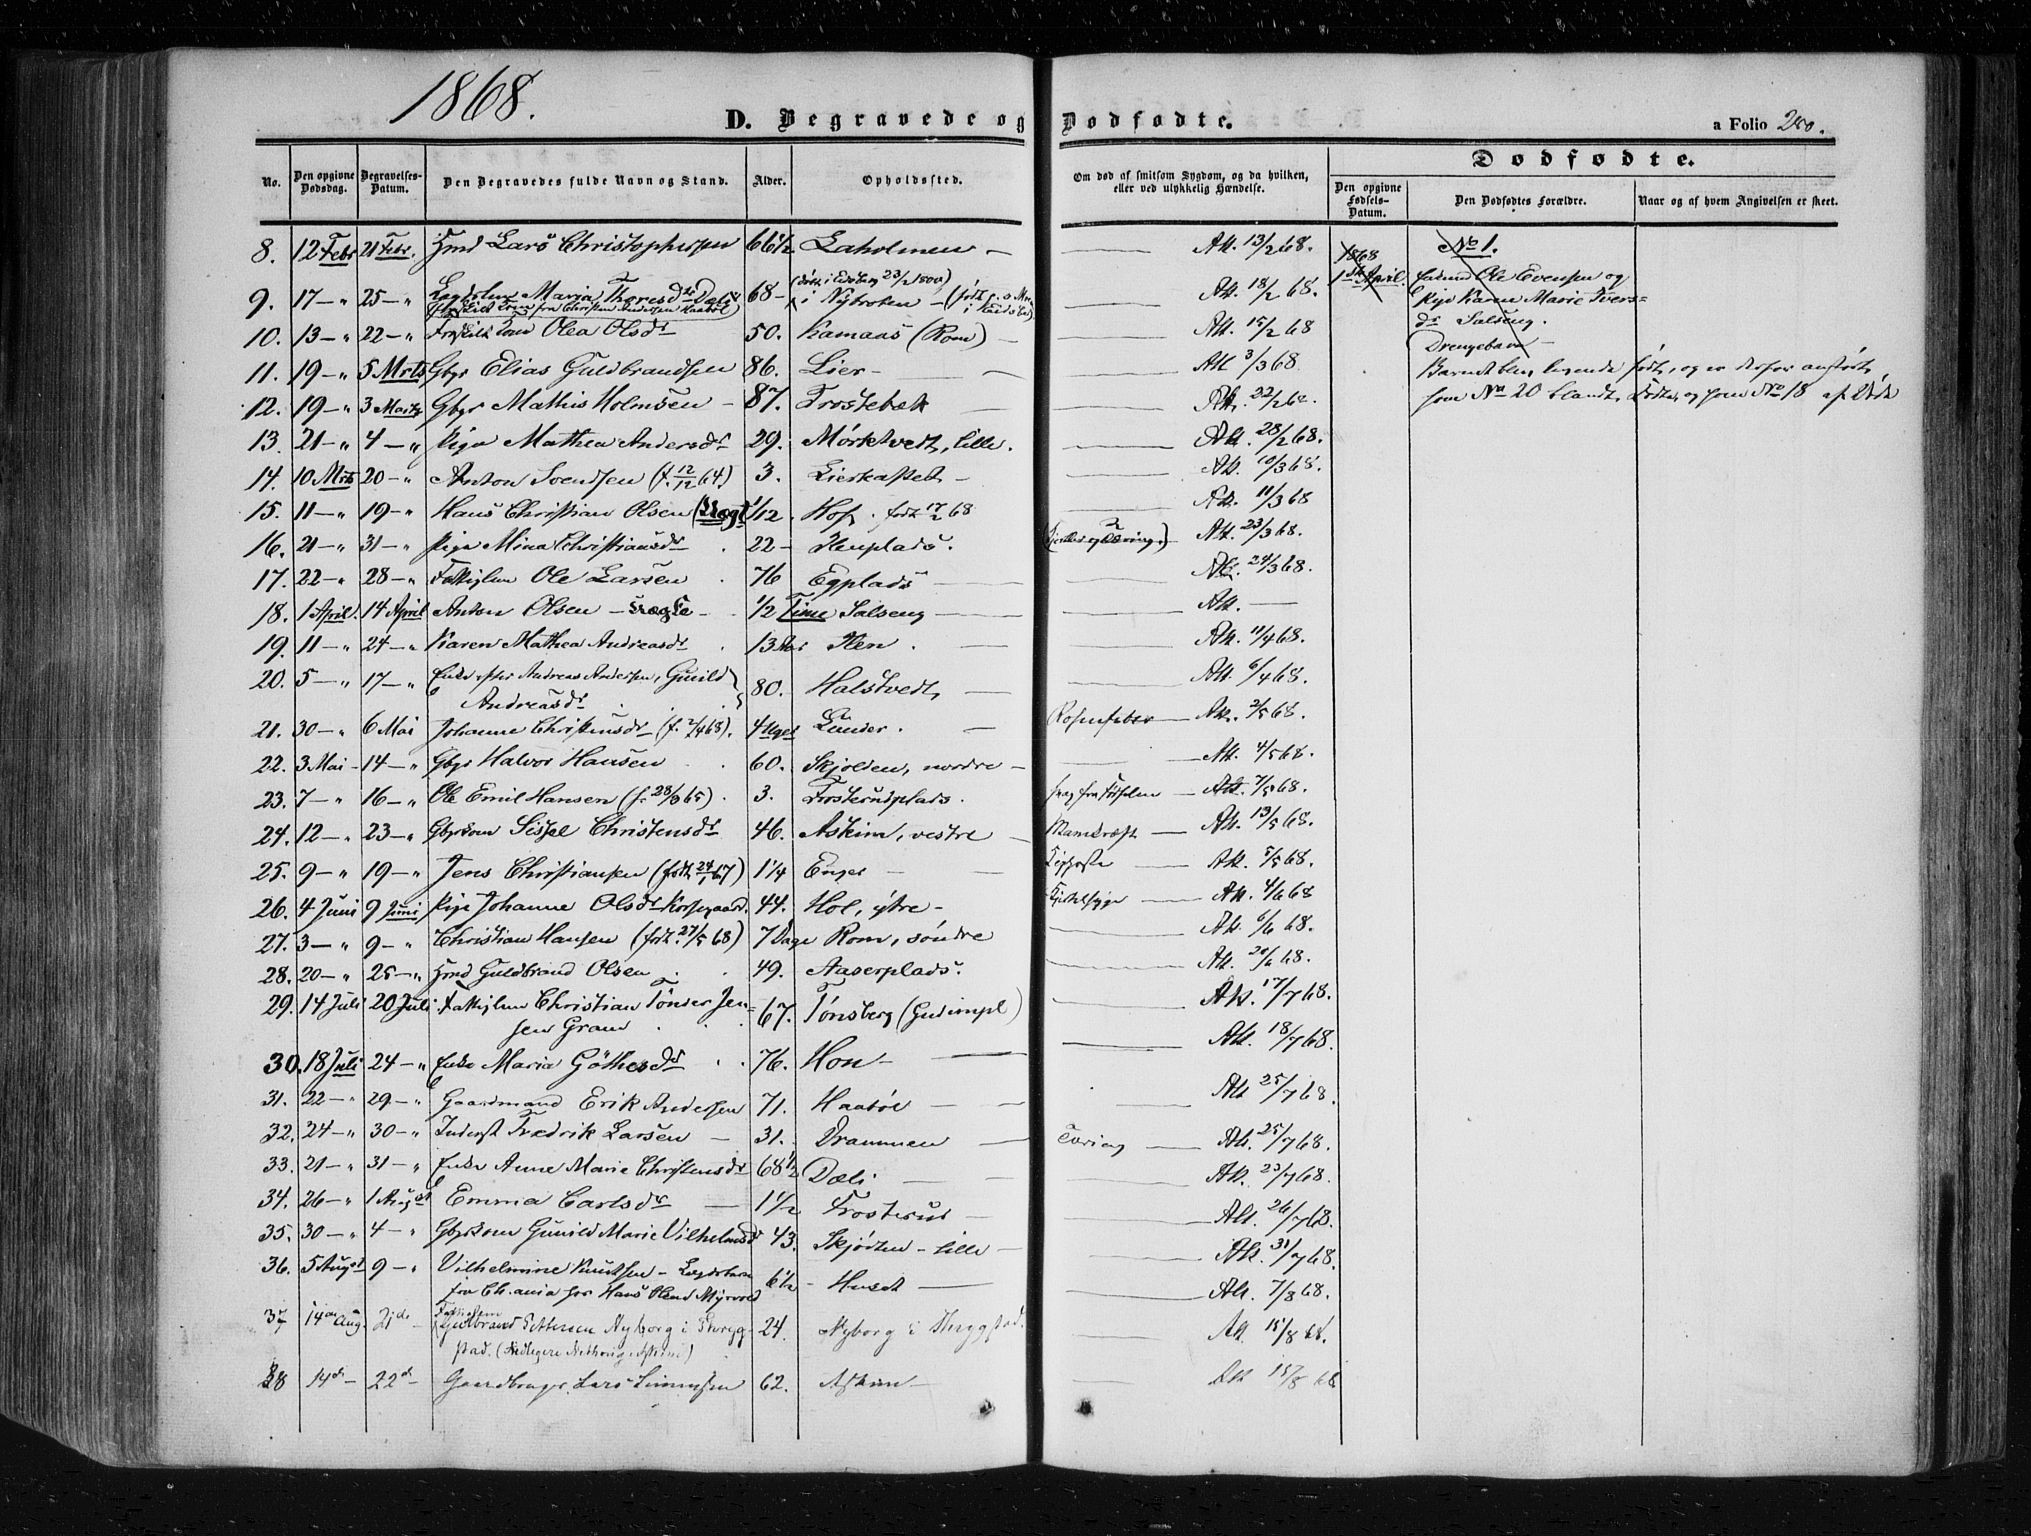 1868.
D. Begravede og Dødfødte.
a Folio 280.
Dødfødte.
No. Den opgivne Dødsdag. Begravelses-Datum. Den Begravedes fulde Navn og Stand. Alder. Opholdssted. Om død af smitsom Sygdom, og da hvilken, eller ved ulykkelig Hændelse. Den opgivne Fødsels-Datum. Den Dødfødtes Forældre. Naar og af hvem Angivelsen er skeet.
8. 12 Febr 21 Febr. Hmd Lars Christophersen 66 1/2 Laholmen — Att. 13/2 68.
9. 17 — " 25 — " Maria Thoresdr 68 — i Nybroten — Att. 18/2 68.
fra Christen Andersen Haabøl
10. 13 — " 22 — " Olea Olsdr 50. Kamaas (Rom) — Att. 15/2 68
11. 19 — " 5 Mrts Gbgr Elias Guldbrandsen 86. Lier — Att 3/3 68.
12. 19 — " 3 Marts Gbgr Mathis Holmsen — 87. Trostebæk — Att. 22/2 68.
13. 21 — " 4 — " Pige Mathea Andersdr 29. Mørktvedt, lille. Att. 28/2 68.
14. 10 Mrts 20 — " Anton Svendsen (f. 12/12 64.) 3. Lierkastet — Att. 10/3 68.
15. 11 — " 19 — " Hans Christian Olsen (uægt 1/12 Hof. født 17/2 68 Att. 11/3 68
16. 21 — " 31 — " Pige Mina Christiansdr 22 — Henplads. Att. 23/3 68.
17. 22 — " 28 — " Fattiglem Ole Larsen 76 Egplads — Att. 24/3 68.
18. 1 April. 14 April Anton Olsen — uægte — 1/2 Time Salseng — Att. —
19. 11 — " 24 — " Karen Mathea Andreasdr 13 Aar Hen. Att. 11/4 68.
20. 5 — " 17 — " Enke efter Andreas Andersen, Gunild Andreasdr 80. Halstvedt, Att. 6/4 68.
21. 30 — " 6 Mai Johanne Christensdr (f. 2/4 68). 4 Uger Lunder. Rosenfeber — Att. 2/5 68.
22. 3 Mai — 14 — " Gbgr Halvor Hansen 60. Skjolden, nordre — Att. 4/5 68.
23. 7 — " 16 — " Ole Emil Hansen (f. 28/3 65). 3. Trosterudplads. svag fra Fødselen — Att. 7/5 68.
24. 12 — " 23 — " Gbgrkone Sissel Christensdr 46. Askim, vestre — Mavekræft — Att. 13/5 68.
25. 9 — " 19 — " Jens Christiansen (født 24/1 67) 1 1/4 Enger — Kighoste — Att. 5/5 68.
26. 4 Juni 9 Juni Pige Johanne Olsdr Korsegaard. 44. Hol, ytre — Kjertelsyge — Att. 4/6 68
27. 3 — " 9 — " Christian Hansen (født. 27/5 68) 7 Dage Rom, søndre — Att. 6/6 68.
28. 20 — " 25 — " Hmd Guldbrand Olsen 49. Aaserplads. Att. 20/6 68.
29. 14 Juli 20 Juli Fattiglem Christian Tønder Jensen Gram 67. Tønsberg (Gudimpl) Att. 17/7 68.
30. 18 Juli 24 — " Enke Maria Göthesdr 76. Hon — Att. 18/7 68.
31. 22 — " 29 — " Gaardmand Erik Andersen 71. Haabøl — Att 25/7 68.
32. 24 — " 30 — " Inderst Fredrik Larsen — 31. Drammen — Tæring — Att. 25/7 68.
33. 21 — " 31 — " Enke Anne Marie Christensdr 68 1/2 Dæli — Att. 23/7 68.
34. 26 — " 1 August Emma Carlsdr — 1 1/2 Trosterud — Att. 26/7 68.
35. 30 — " 4 — " Gbgrkone Gunild Marie Vilhelmsd 43. Skjørten — lille — Att. 31/7 68.
36. 5 August 9 — " Vilhelmine Knudsen — Lægdsbarn fra Ch.ania hos Hans Olsen Myrvold 6 1/2 — Huset — Att. 7/8 68.
37 14de Aug. 21de — Guldbrand Pettersen Nyborg i Thrygstad. 24. Nyborg i Thrygstad. Att. 15/8 68.
38 14de — 22de — Gaardbruger Lars Simensen 62. Askim — Att 15/8 68.
1868
1ste April.
No 1.
Ole Evensen og
Pige Karen Marie Ivers-
dr Salseng.
Drengebarn —
Barnet blev levende født, og er derfor anført
som No 20 blandt Fødte, og som No 18 af Døde